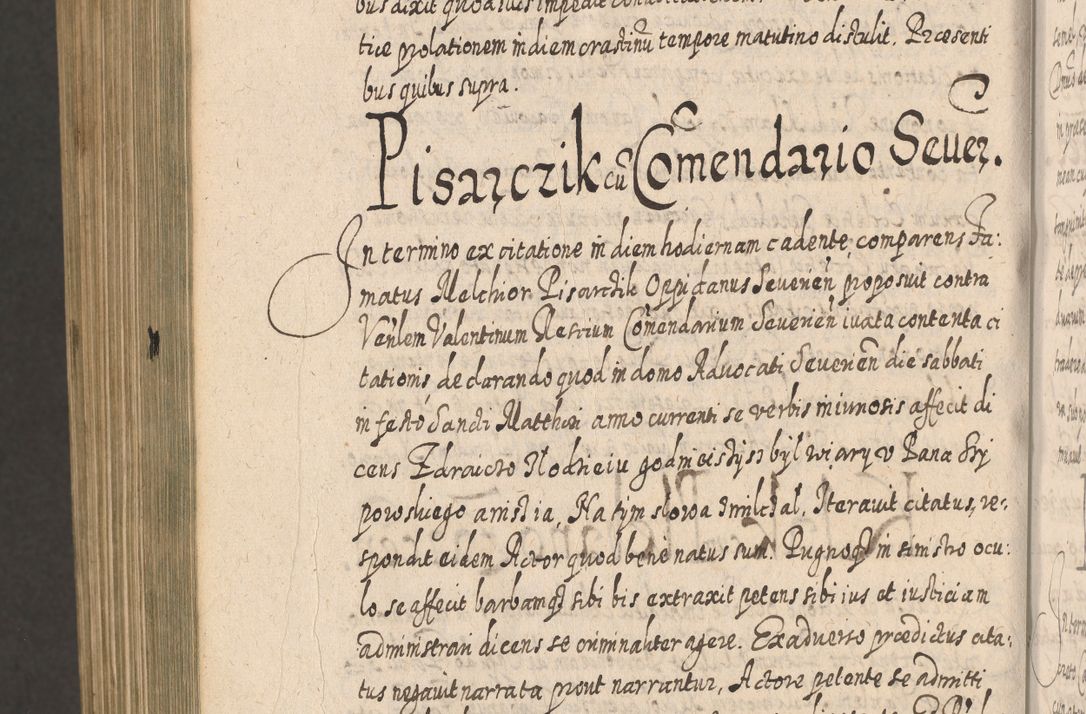 tice prolationem in diem crastinũ tempore matutino distulit. Præsenti
bus quibus supra.
Pisarczik cũ Comendario Seuer.
In termino ex citatione in diem hodiernam cadente, comparens Fa:
matus Melchior Pisarczik Oppidanus Seuereñ proposuit contra
Veñlem Valentinum Comendarium Seuereñ iuxta contenta ci
tationis declarando quod in domo Aduocati Seuereñ die sabbati
in festo Sancti Matthæi anno currenti se verbis iniuriosis affecit di
cens Zdraicżo Zlodzieiu godzieneś byl wiary v Pana
Ha tym slowa zmilczal. Iterauit citatus, re:
spondit eidem Actor quod bene natus sum. Pugnoq3 in sinistro ocu:
lo se affecit barbamq3 sibi bis extraxit petens sibi ius et iusticiam
administrari dicens se criminaliter agere. Ex aduerso prædictus cita:
tus negauit narrata prout narrantur, Actore petente se admitti